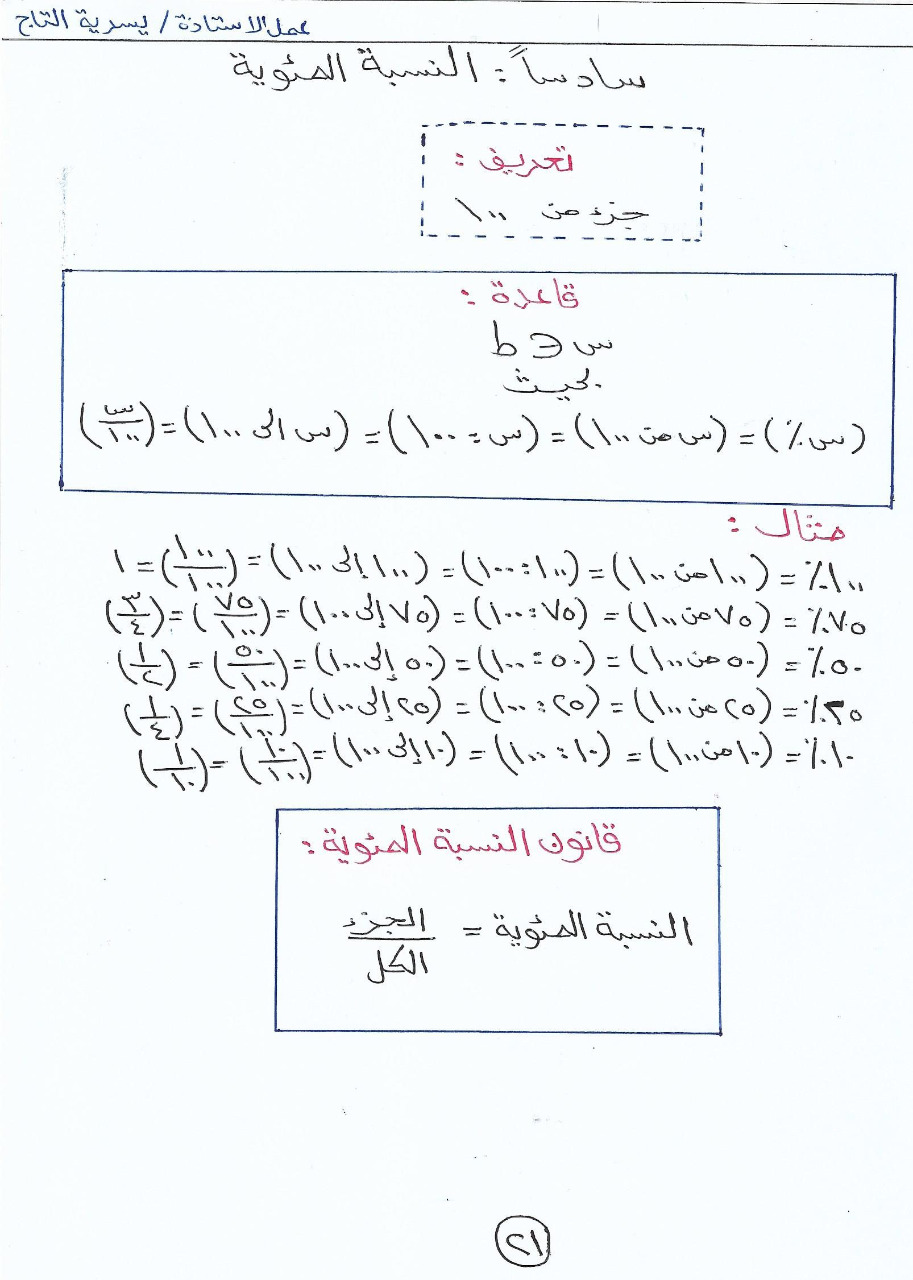 عمل الاستاذة / يسرية التاج
سادساً : النسبة المئوية
تعريف :
جزء من ١٠٠
قاعدة :
س ∈ ط
بحيث
(س٪) = (س من ١٠٠) = (س : ١٠٠) = (س الى ١٠٠) = (س/١٠٠)
مثال :
١٠٠٪ = (١٠٠ من ١٠٠) = (١٠٠ : ١٠٠) = (١٠٠ إلى ١٠٠) = (١٠٠/١٠٠) = ١
٧٥٪ = (٧٥ من ١٠٠) = (٧٥ : ١٠٠) = (٧٥ إلى ١٠٠) = (٧٥/١٠٠) = (٣/٤)
٥٠٪ = (٥٠ من ١٠٠) = (٥٠ : ١٠٠) = (٥٠ إلى ١٠٠) = (٥٠/١٠٠) = (١/٢)
٢٥٪ = (٢٥ من ١٠٠) = (٢٥ : ١٠٠) = (٢٥ إلى ١٠٠) = (٢٥/١٠٠) = (١/٤)
١٠٪ = (١٠ من ١٠٠) = (١٠ : ١٠٠) = (١٠ إلى ١٠٠) = (١٠/١٠٠) = (١/١٠)
قانون النسبة المئوية :
النسبة المئوية = الجزء/الكل
٢١